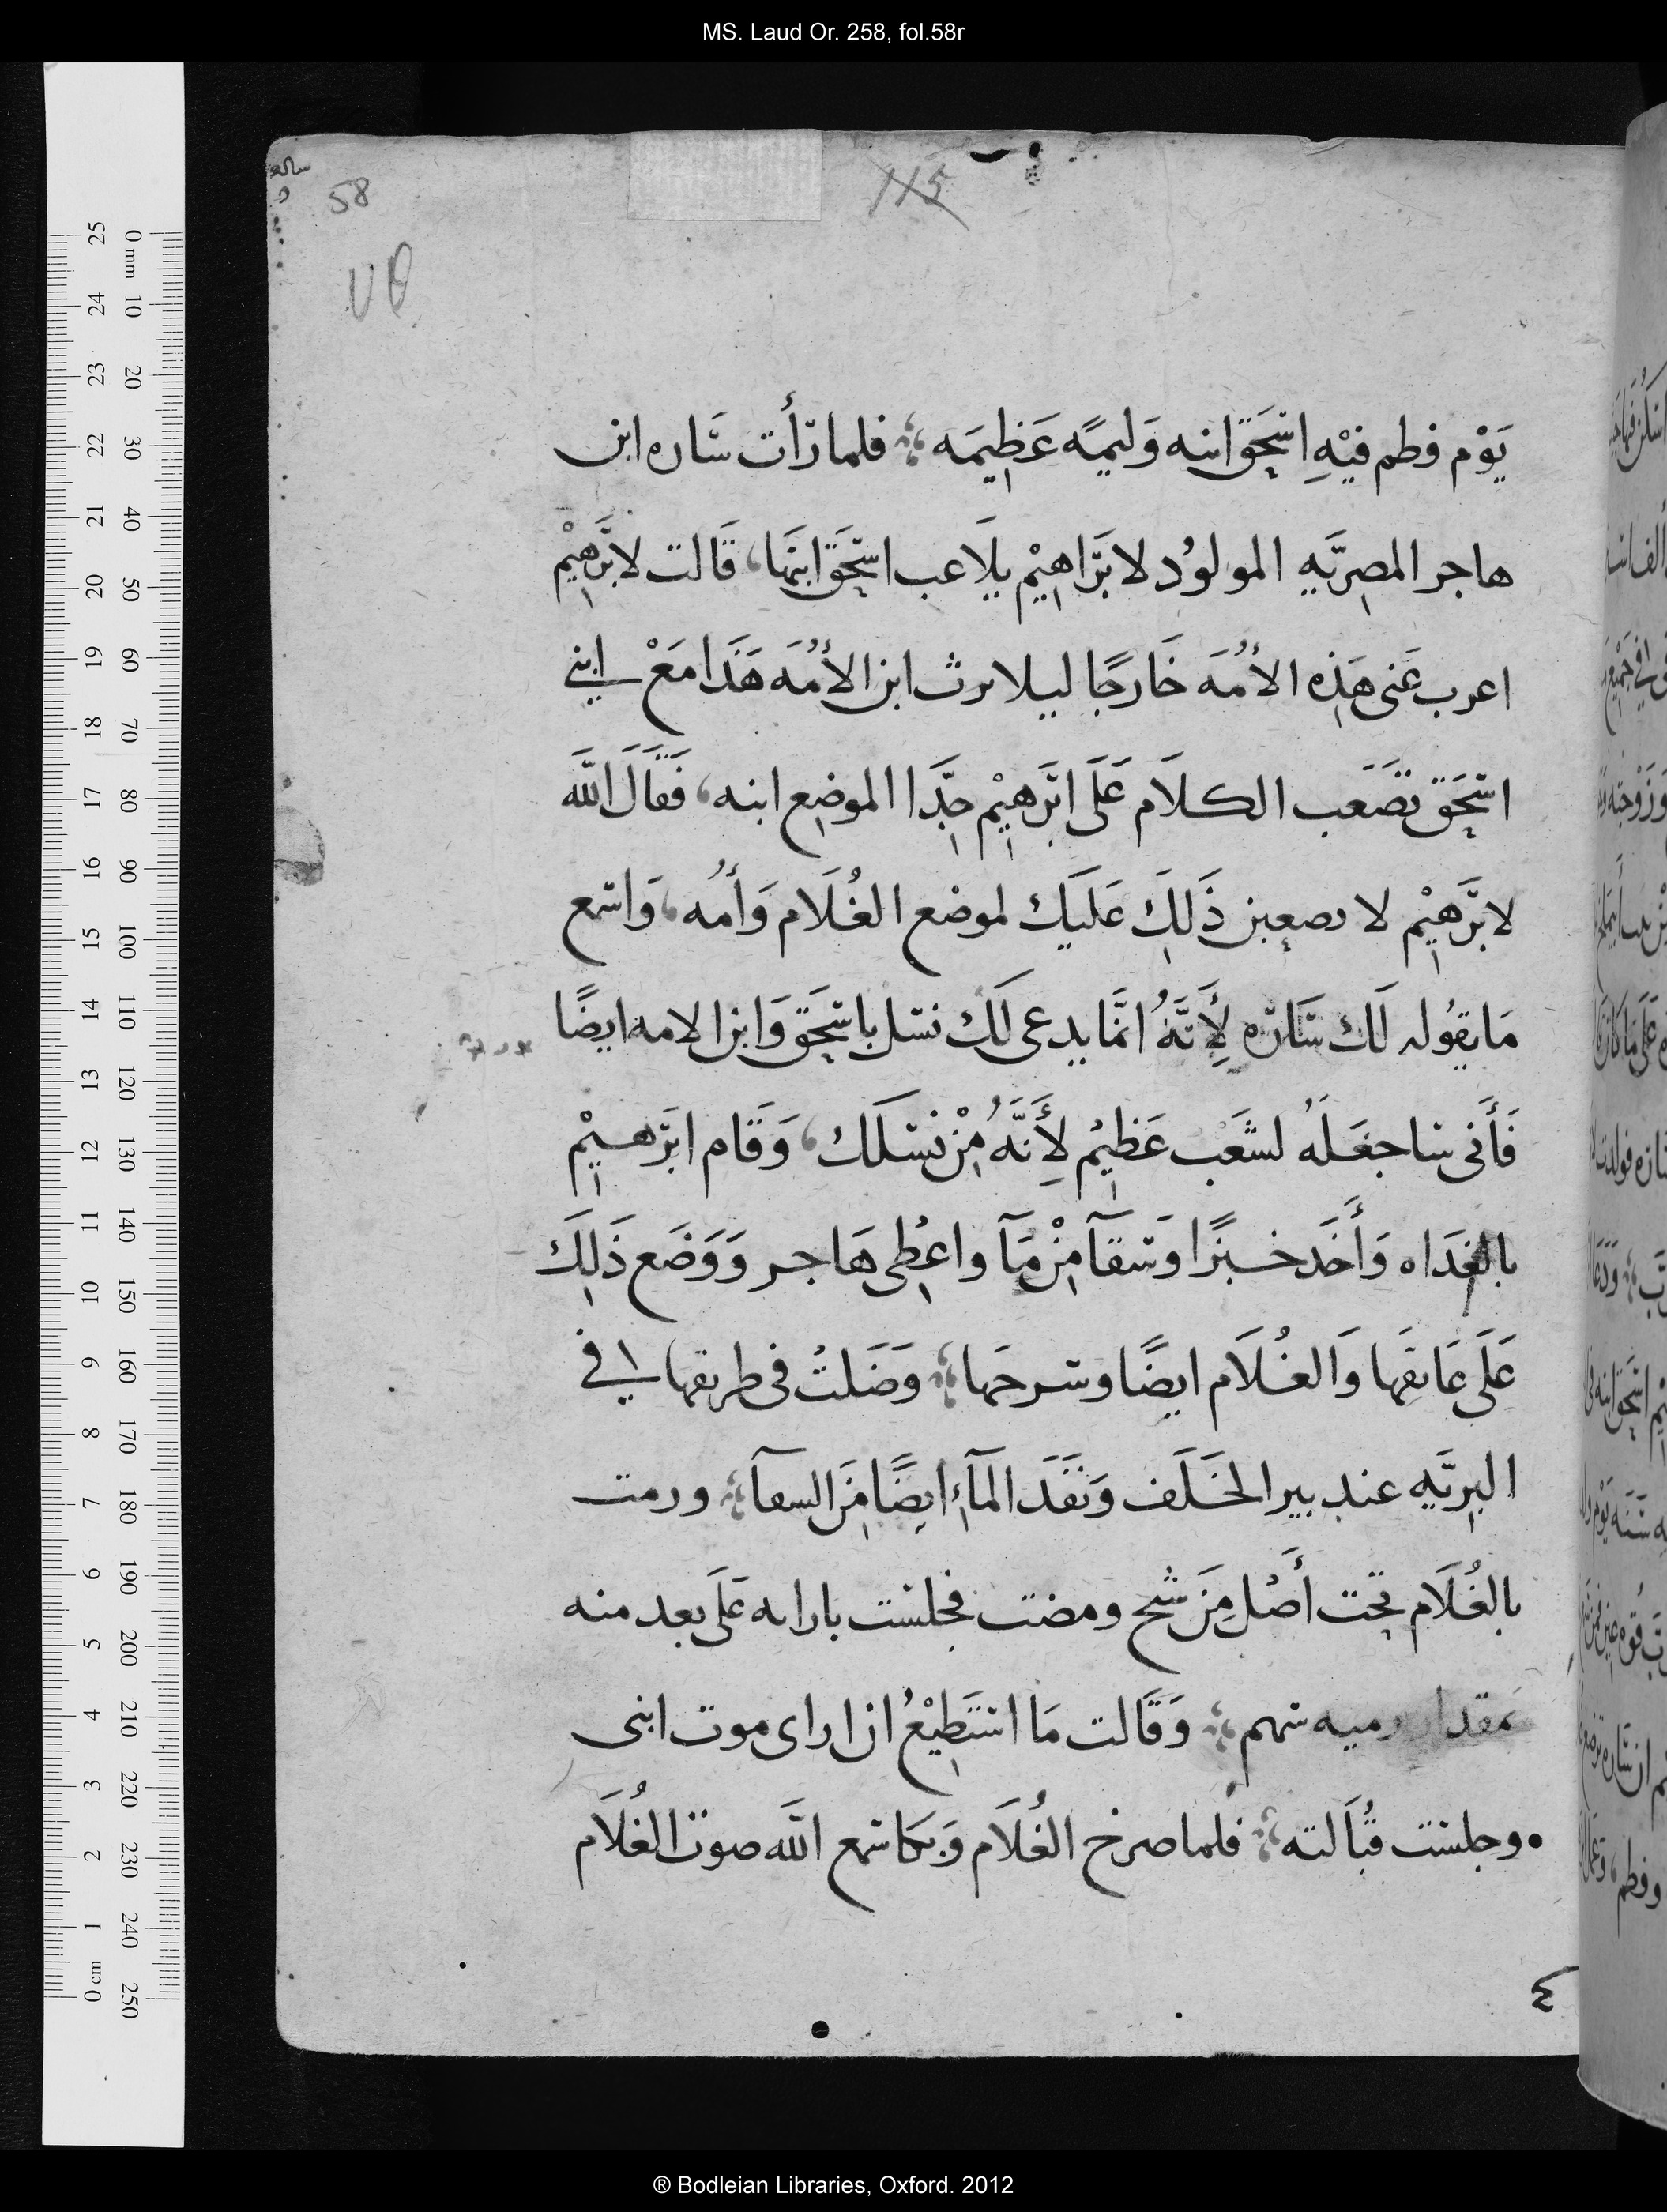 MS. Laud Or. 258, fol.58r
58
115
يَوْم فطم فيْهِ اسْحَق ابنه وَليمًه عَظِيمَه فلما رَأَت سَاره ابن
هاجر المصِريَّه المولوُد لابَراهِيْم يلَاعب اسْحَق ابنَها، قَالت لابَرهِيْم
اعرب عَنى هَذِه الأمُه خَارجًا ليلا يرث ابن الأمُه هَذَا مَعْ ابني
اسْحَق فصَعَب الكلاَم عَلَى ابَرهِيْم جِدَّا الموضِع ابنه، فَقَالَ اللَّه
لابَرهِيْم لا يصعبن ذَلِكَ عَليَك لموضع الغُلَام وَأمُه، وَاسْمع
مَا يقوُله لَك سَارَه لِأَنَّهُ انمَّا يدعى لَك نسَل باسْحَق وَابن الامه ايضًا
فَأَنى سَاجعَلهُ لشَعَب عَظِيْم لِأَنَّهُ مِنْ نسَلَك، وَقَام ابَرهِيْم
بالغَدَاه وَأَخَد خبزًا وَسَقآ مِنْ مَآ واعطِى هَاجر وَوَضَع ذَلِكَ
عَلَى عَاتقِها وَالغُلاَم ايضًا وسَرحَها، وَضَلتْ فى طريقها فى
البِريَّه عند بير الحَلَف وَنفَدَ المَآء ايضًا مِنَ السقآ، ورمت
بالغُلَام تحِت أَصْل مِنَ شْيح ومضت فجلسَت بارايه عَلَى بعد منه
بمقدار رميه سَهم، وَقَالت مَا اسْتَطِيْعُ ان اراى موت ابنى
وجلسَت قُبَالته، فلما صرخ الغُلاَم وَبكا سَمع اللَّه صوت الغُلاَم
٤
® Bodleian Libraries, Oxford. 2012